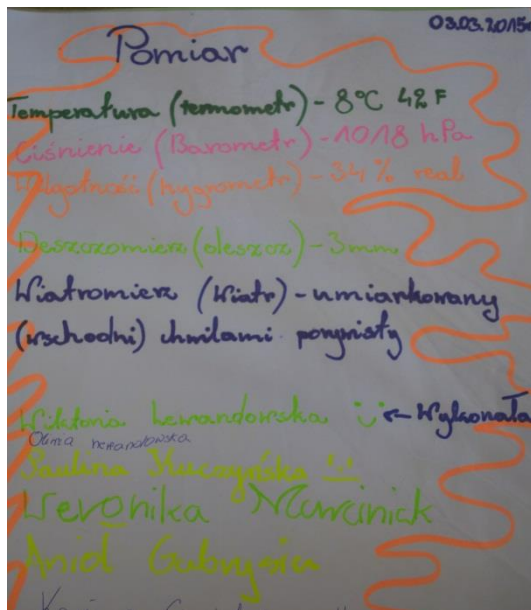 03.03.2015r
Pomiar
Temperatura (termometr) - 8°C 42 F
Ciśnienie (Barometr) - 1018 hPa
Wilgotność (hygrometr) - 34 % real
Deszczomierz (deszcz) - 3mm
Wiatromierz (Wiatr) - umiarkowany
(wschodni) chwilami porywisty
Wiktoria Lewandowska ← Wykonała
Lewandowska
Paulina
Weronika Marciniak